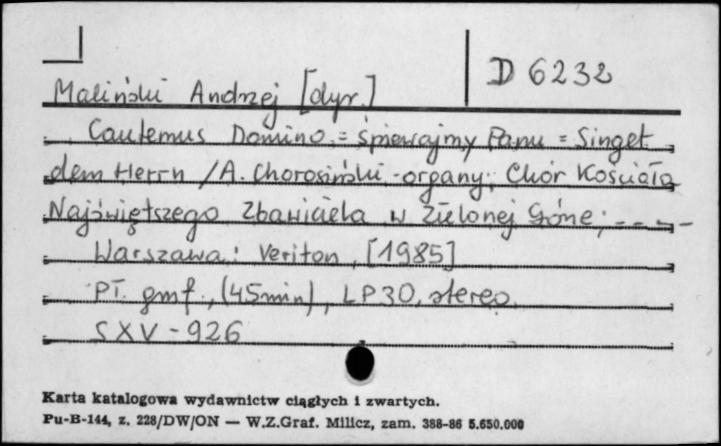 D 6232
Maliński Andrzej [dyr.]
Cantemus Domino = Śpiewajmy Panu = Singet
dem Herrn / A. Chorosiński - organy; Chór Kościoła
Najświętszego Zbawiciela w Zielonej Górze; ----
Warszawa: Veriton, [1985]
Pł. gmf., (45min), LP30, stereo
SXV - 926
Karta katalogowa wydawnictw ciągłych i zwartych.
Pu-B-144, z. 228/DW/ON — W.Z.Graf. Milicz, zam. 388-86 5.650.000